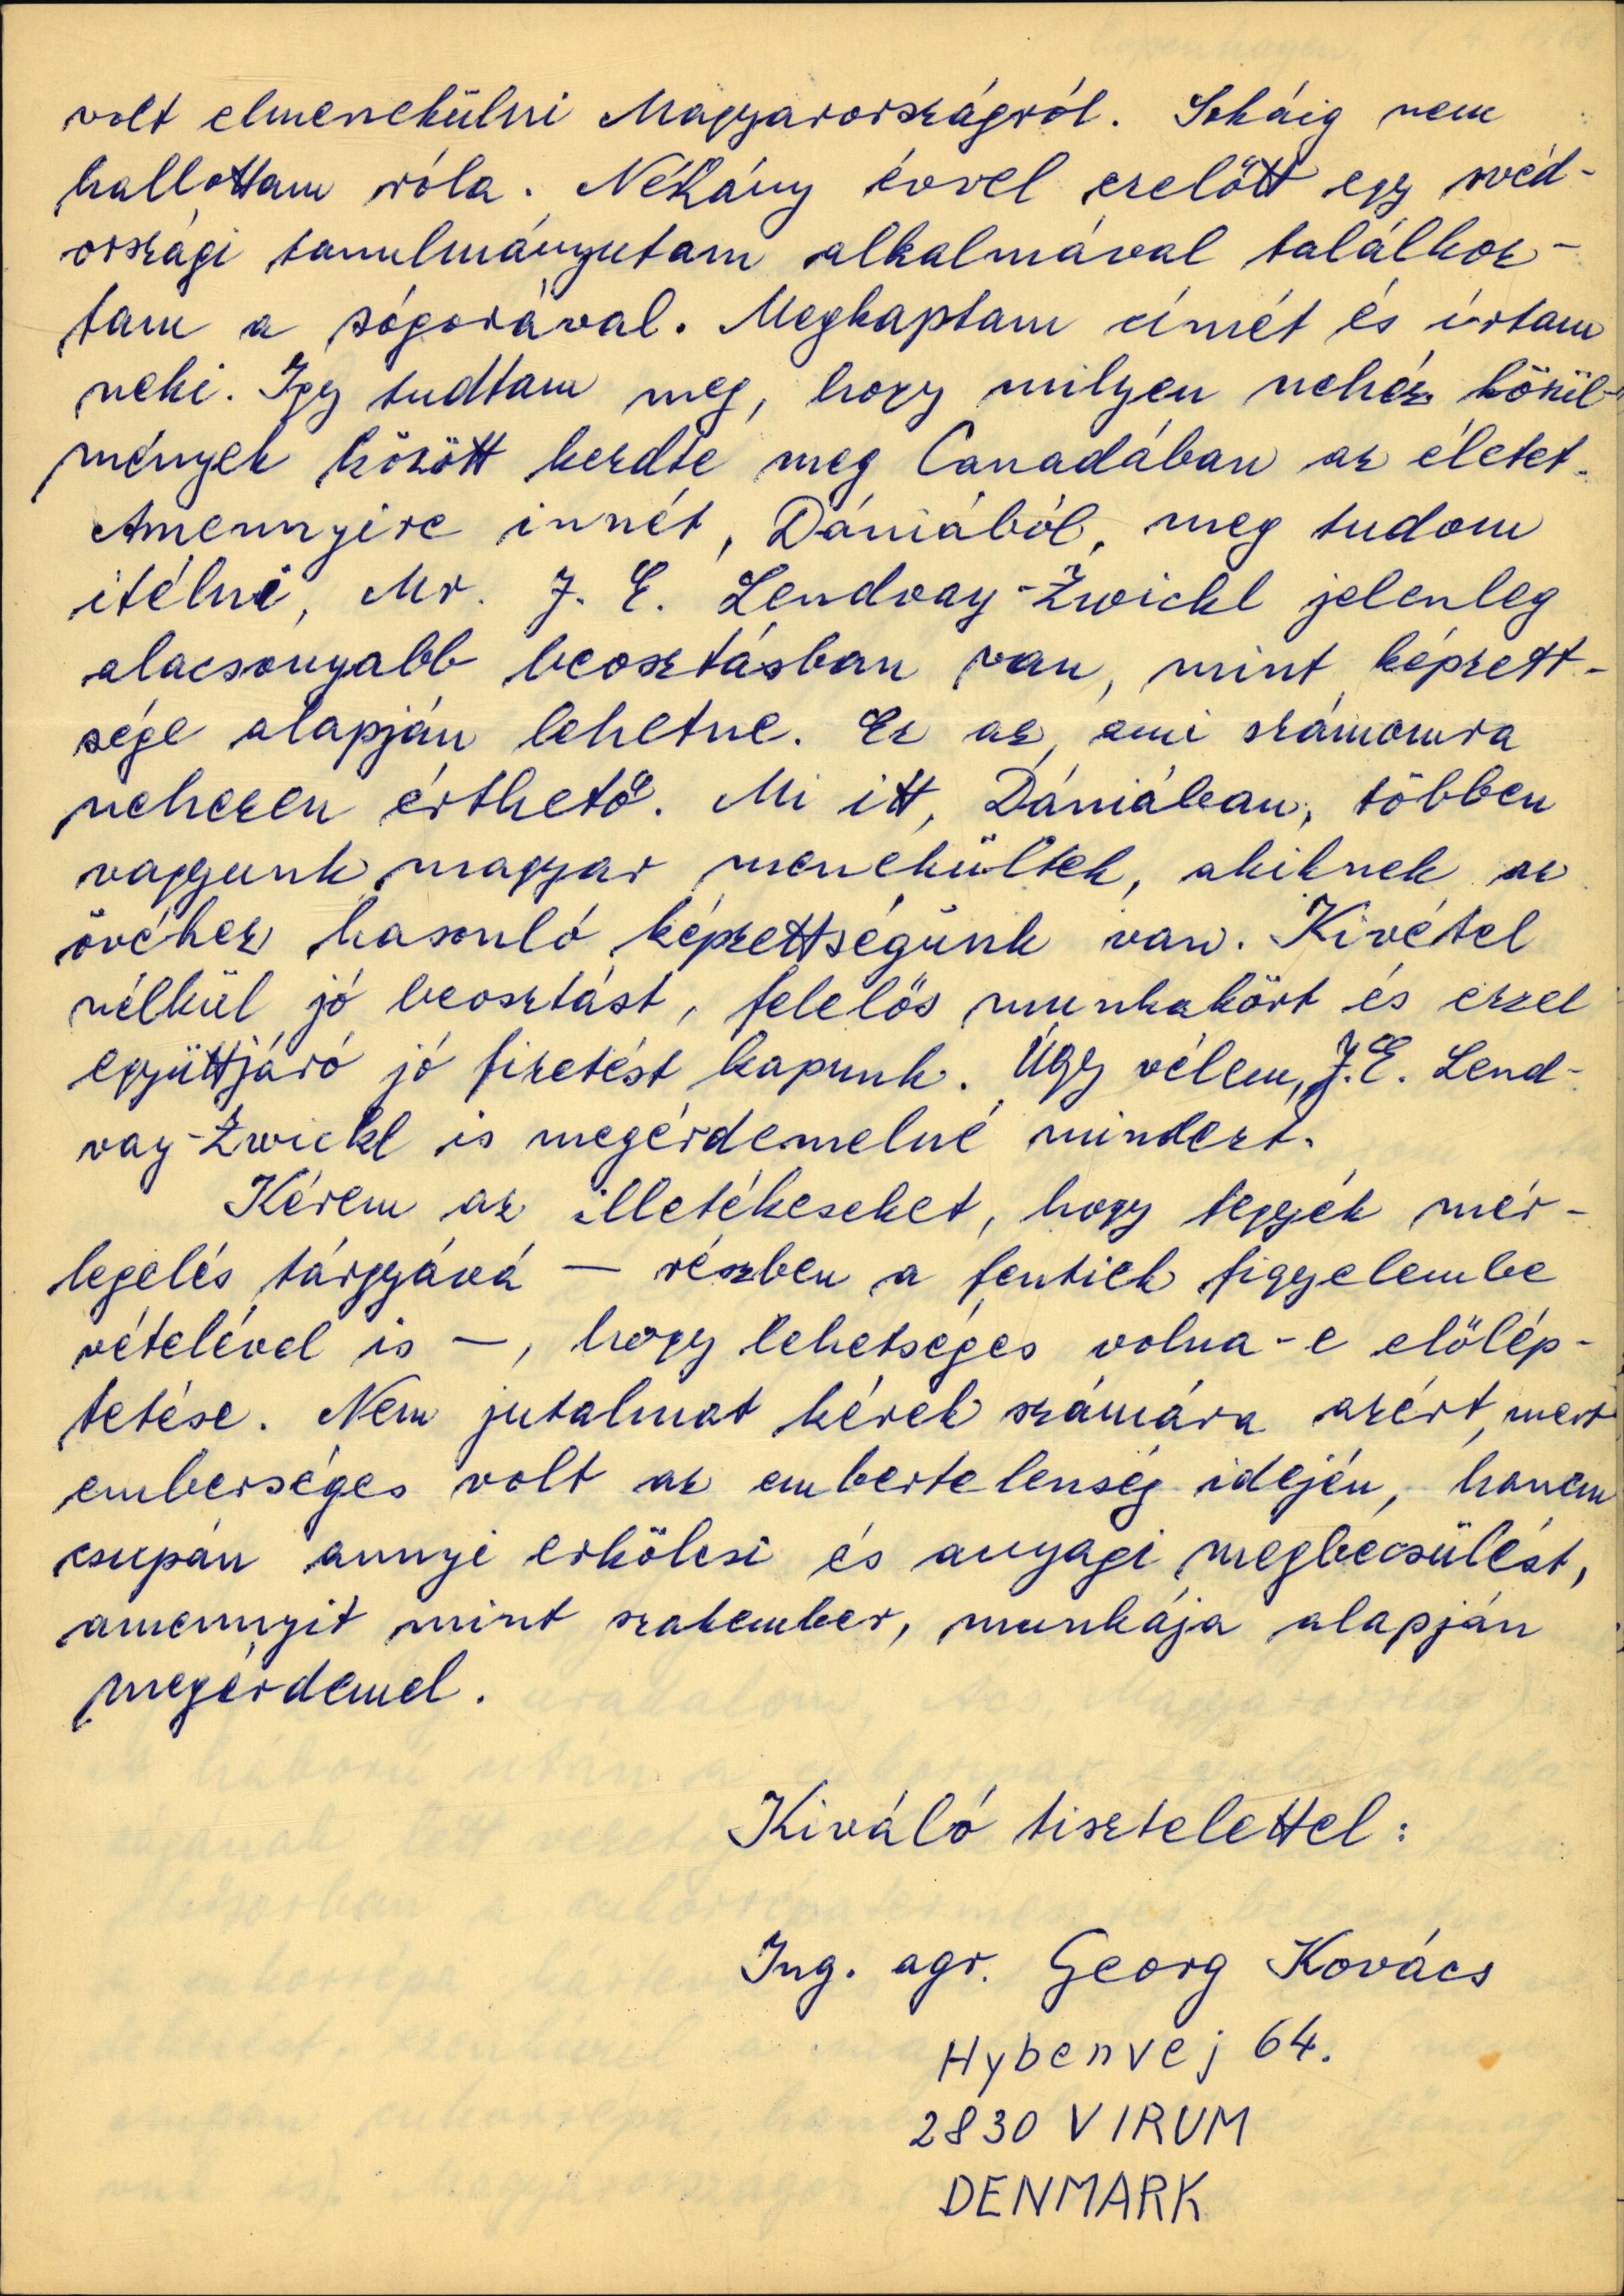 volt elmenekülni Magyarországról. Sokáig nem
hallottam róla. Néhány évvel ezelőtt egy svéd-
országi tanulmányutam alkalmával találkoz-
tam a sógorával. Megkaptam címét és írtam
neki. Igy tudtam meg, hogy milyen nehéz körül-
mények között kezdte meg Canadában az életet.
Amennyire innét, Dániából, meg tudom
itélni, Mr. J. E. Lendvay-Zwickl jelenleg
alacsonyabb beosztásban van, mint képzett-
sége alapján lehetne. Ez az, ami számomra
nehezen érthető. Mi itt, Dániában, többen
vagyunk magyar menekültek, akiknek az
övéhez hasonló képzettségünk van. Kivétel
nélkül jó beosztást, felelős munkakört és ezzel
együttjáró jó fizetést kapunk. Úgy vélem, J.E. Lend-
vay-Zwickl is megérdemelné mindezt.
Kérem az illetékeseket, hogy tegyék mér-
legelés tárgyává — részben a fentiek figyelembe
vételével is —, hogy lehetséges volna-e előlép-
tetése. Nem jutalmat kérek számára azért, mert
emberséges volt az embertelenség idején, hanem
csupán annyi erkölcsi és anyagi megbecsülést,
amennyit mint szakember, munkája alapján
megérdemel.
Kiváló tisztelettel:
Ing. agr. Georg Kovács
Hybenvej 64.
2830 VIRUM
DENMARK